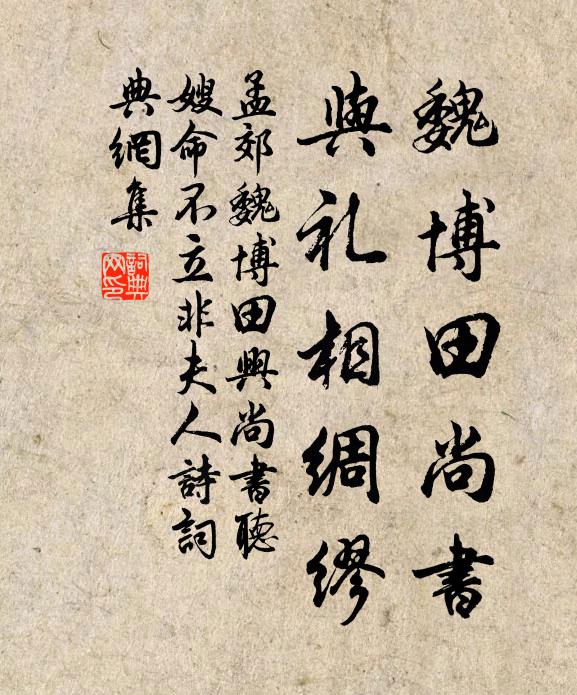 魏博田尚書
與礼相綢繆
孟郊魏博田興尚書聽
嫂命不立非夫人詩詞
典網集
詞典
网印